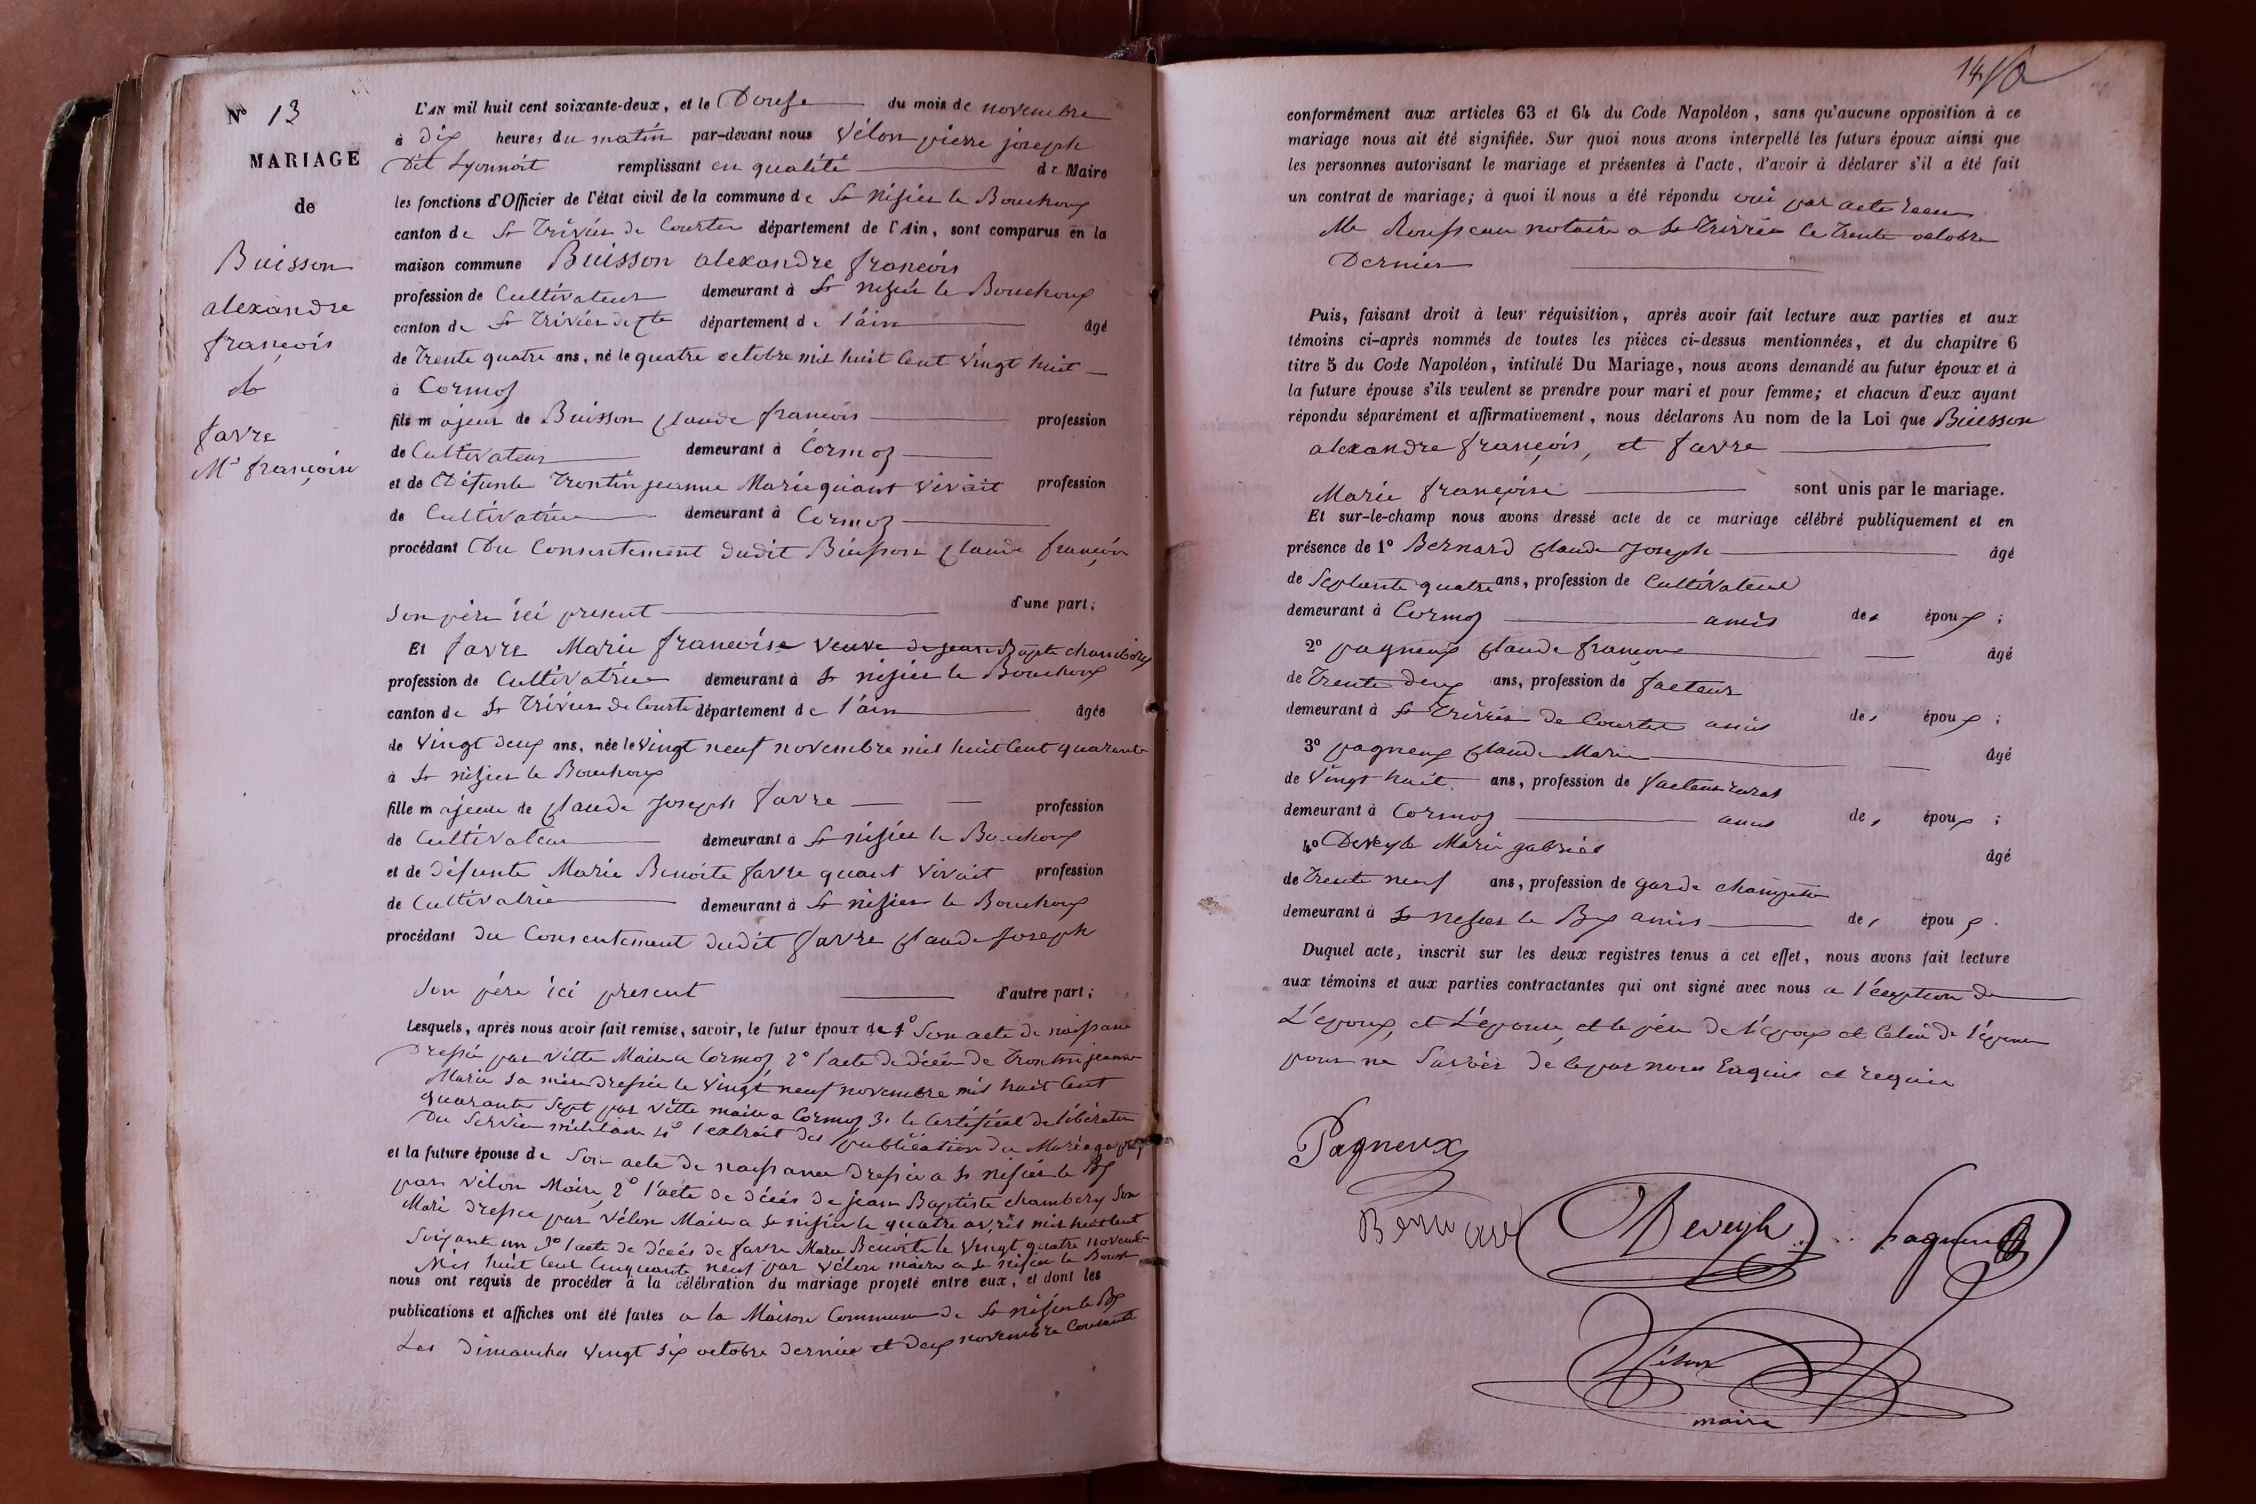 N° 13
MARIAGE
de
Buisson
alexandre
françois
&
favre
Mie françoise
L'AN mil huit cent soixante-deux, et le Douse du mois de novembre
à Dix heures du matin par-devant nous Vélon pierre joseph
Dit Lyonnoit remplissant en qualité de Maire
les fonctions d'Officier de l'état civil de la commune de St Nisier le Bouchoux
canton de St Trivier de Courtes département de l'Ain, sont comparus en la
maison commune Buisson alexandre françois
profession de Cultivateur demeurant à St nizier le Bouchoux
canton de St Trivier de Ctes département de l'ain âgé
de Trente quatre ans, né le quatre octobre mil huit Cent Vingt huit
à Cormoz
fils majeur de Buisson Claude françois profession
de Cultivateur demeurant à Cormoz
et de Défunte Trontin jeanne Marie quant Vivait profession
de Cultivatrice demeurant à Cormoz
procédant Du Consentement dudit Buisson Claude françois
Son père ici present d'une part;
Et favre Marie françoise veuve de jean Bapte chambéry
profession de Cultivatrice demeurant à St nizier le Bouchoux
canton de St Trivier de Courtes département de l'ain âgée
de Vingt deux ans, née le Vingt neuf novembre mil huit Cent quarante
à St nizier le Bouchoux
fille majeure de Claude Joseph favre profession
de Cultivateur demeurant à St nizier le Bouchoux
et de défunte Marie Benoite favre quant Vivait profession
de Cultivatrice demeurant à St nizier le Bouchoux
procédant du Consentement dudit favre Claude Joseph
Son père ici present d'autre part;
Lesquels, après nous avoir fait remise, savoir, le futur époux de 1° Son acte de naissance
Dressée par Vitte Maire a Cormoz, 2° l'acte de décés de Trontin jeanne
Marie sa mère dressée le Vingt neuf novembre mil huit Cent
quarante Sept par Vitte maire a Cormoz 3° le Certificat de libération
Du Service militaire 4° l'extrait des publication du Mariage
et la future épouse de Son acte de naissance Dressée a St nisier le Bx
par Vélon Maire, 2° l'acte de décés de jean Baptiste chambery Son
Mari dressée par Vélon Maire a St nisier le quatre avril mil huit Cent
Soixante un 3° l'acte de décés de favre Marie Benoite le Vingt quatre novembre
Mil huit Cent Cinquante neuf par Vélon maire a St nisier le Bouch
nous ont requis de procéder à la célébration du mariage projeté entre eux, et dont les
publications et affiches ont été faites a la Maison Commune de St nisier le Bx
Les dimanches Vingt Six octobre dernier et Deux novembre Courante
conformément aux articles 63 et 64 du Code Napoléon, sans qu'aucune opposition à ce
mariage nous ait été signifiée. Sur quoi nous avons interpellé les futurs époux ainsi que
les personnes autorisant le mariage et présentes à l'acte, d'avoir à déclarer s'il a été fait
un contrat de mariage; à quoi il nous a été répondu oui par acte recu
Me Rousseau notaire a St Trivier le Trente octobre
Dernier
Puis, faisant droit à leur réquisition, après avoir fait lecture aux parties et aux
témoins ci-après nommés de toutes les pièces ci-dessus mentionnées, et du chapitre 6
titre 5 du Code Napoléon, intitulé Du Mariage, nous avons demandé au futur époux et à
la future épouse s'ils veulent se prendre pour mari et pour femme; et chacun d'eux ayant
répondu séparément et affirmativement, nous déclarons Au nom de la Loi que Buisson
alexandre françois, et favre
Marie françoise sont unis par le mariage.
Et sur-le-champ nous avons dressé acte de ce mariage célébré publiquement et en
présence de 1° Bernard Claude Joseph âgé
de Septante quatre ans, profession de Cultivateur
demeurant à Cormoz amis des époux;
2° pagneux Claude françois âgé
de Trente deux ans, profession de facteur
demeurant à St Trivier de Courtes amis des époux;
3° pagneux Claude Marie âgé
de Vingt huit ans, profession de facteur rural
demeurant à Cormoz amis des époux;
4° Deveyle Marie gabriel âgé
de Trente neuf ans, profession de garde champetre
demeurant à St nisier le Bx amis des époux.
Duquel acte, inscrit sur les deux registres tenus à cet effet, nous avons fait lecture
aux témoins et aux parties contractantes qui ont signé avec nous a l'éxeption de
L'epoux, et L'epouse, et le père de l'epoux et Celui de l'épouse
pour ne Savoir de ce par nous Enquis et requis
Pagneux
Bernard
Deveyle
Pagneux
Vélon
maire